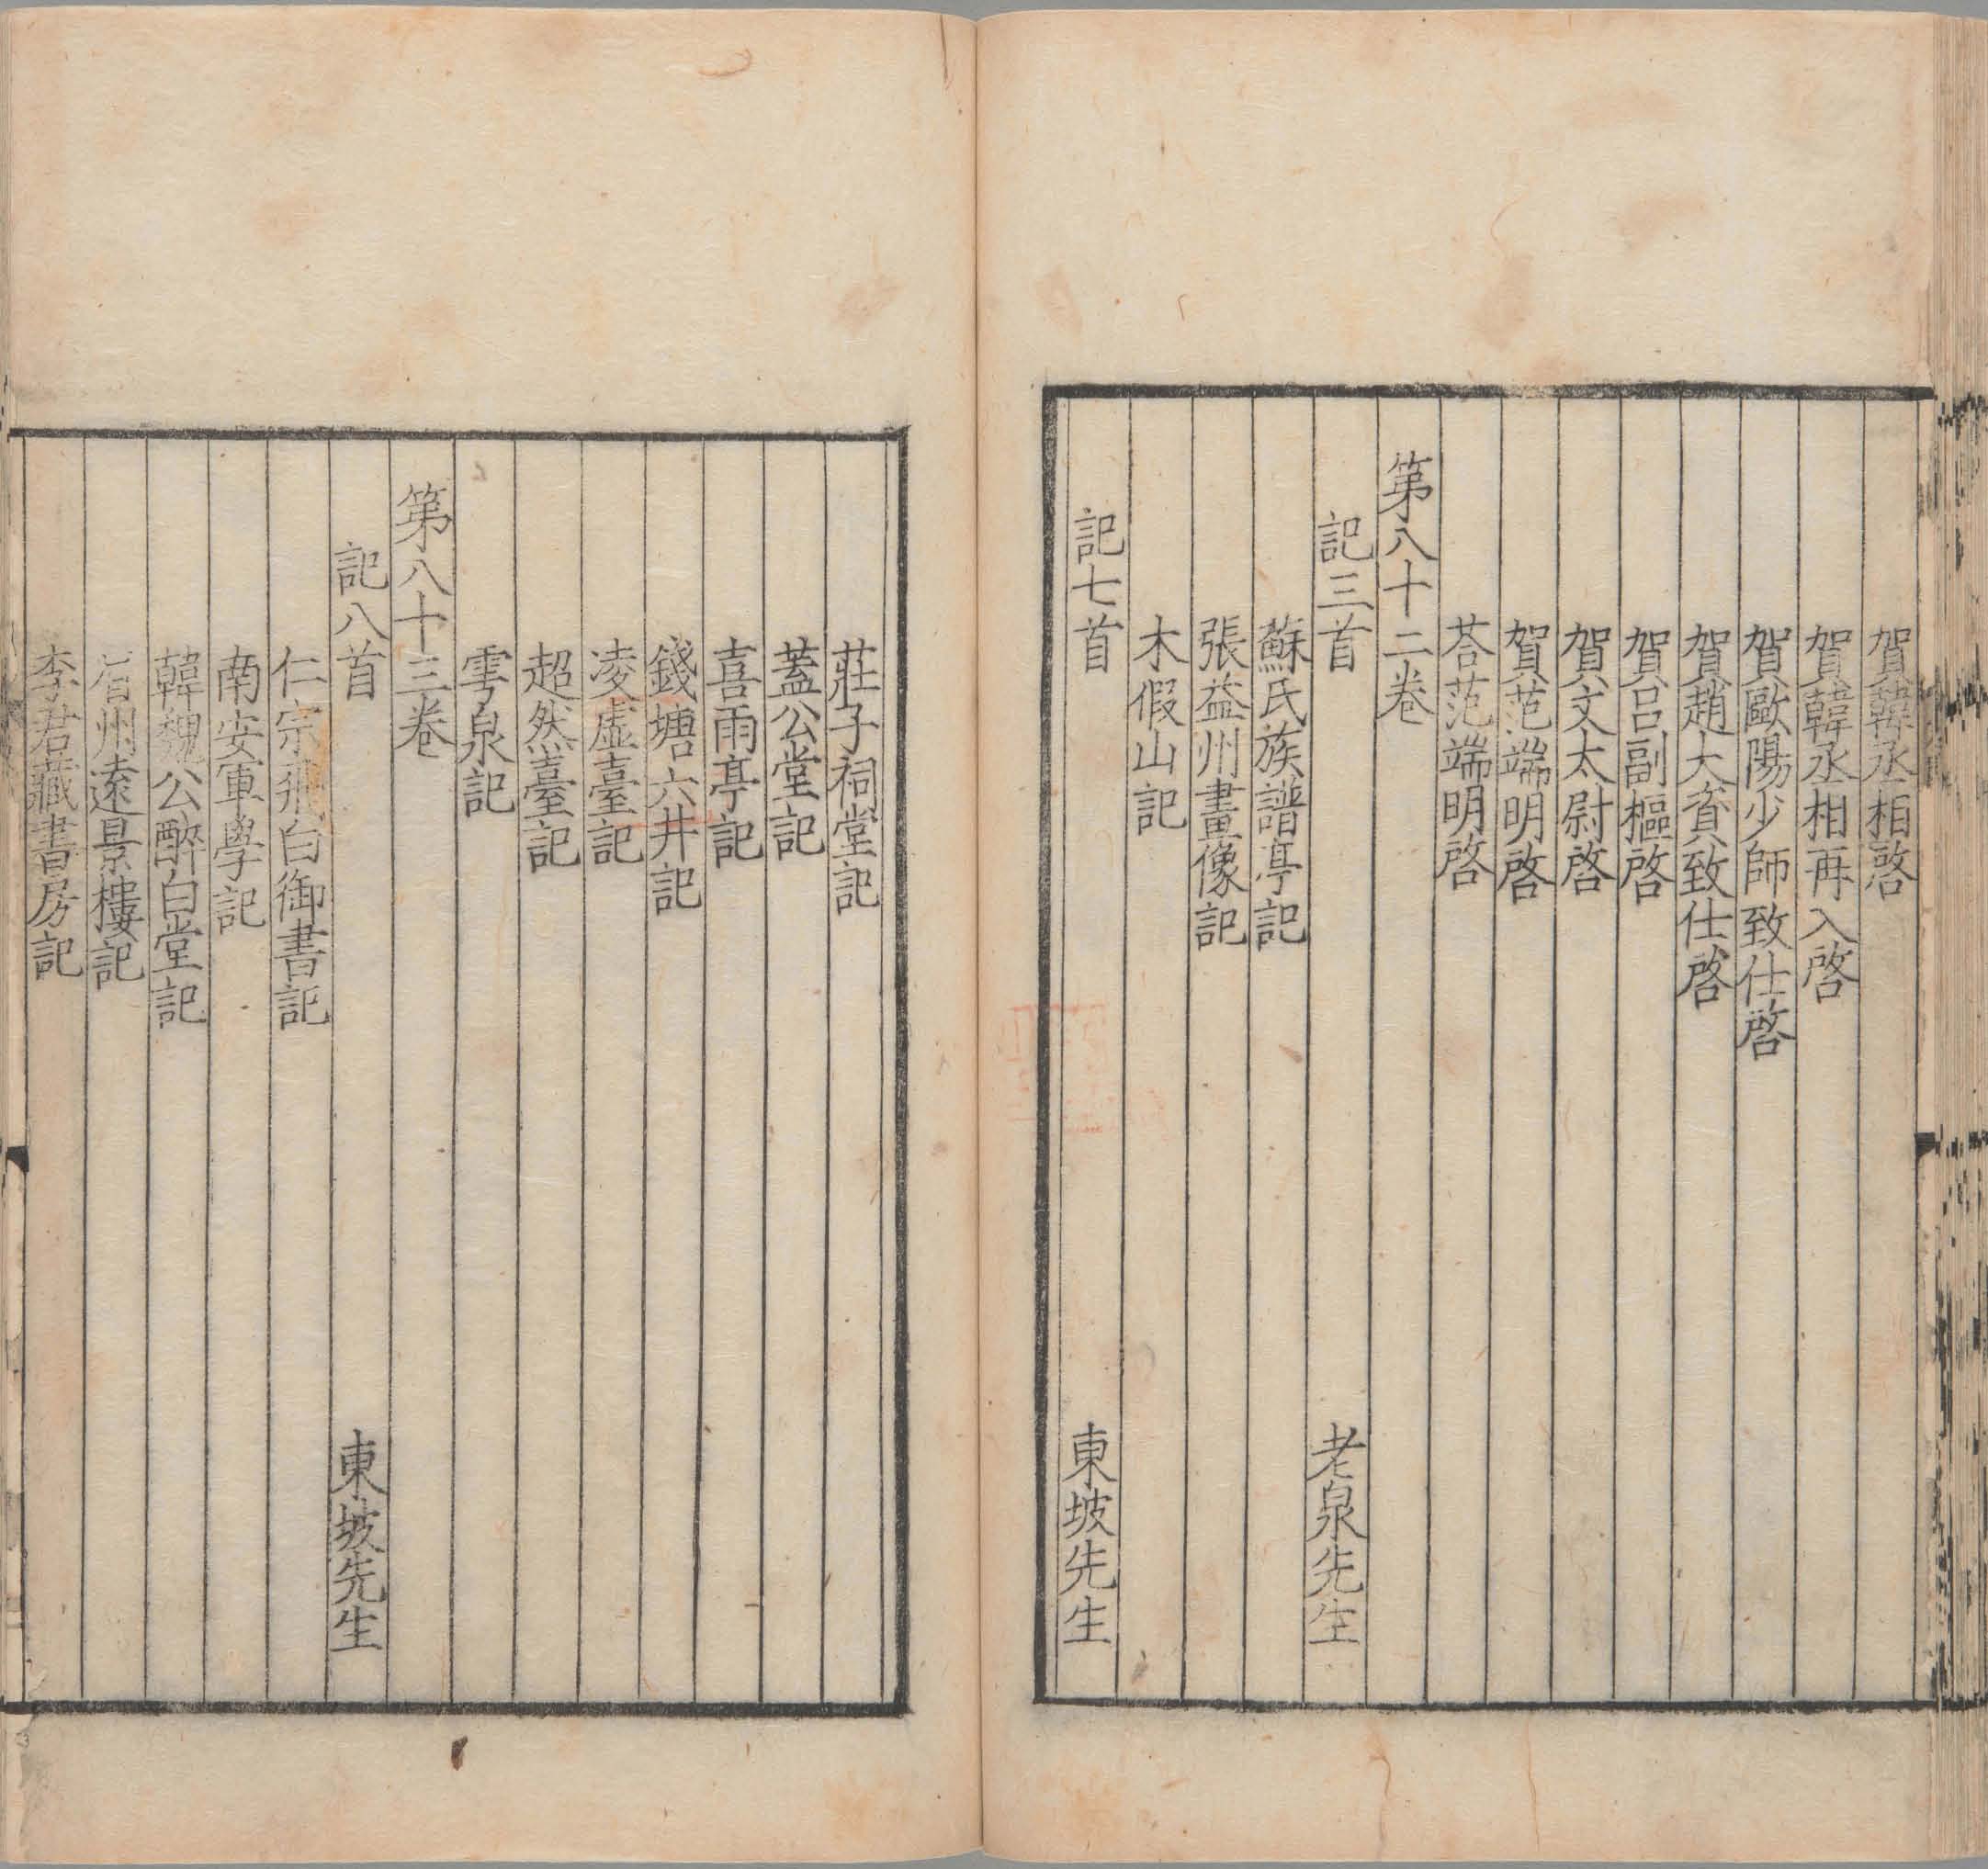 賀韓丞相啓
賀韓丞相再入啓
賀歐陽少師致仕啓
賀趙大資致仕啓
賀呂副樞啓
賀文太尉啓
賀范端明啓
荅范端明啓
第八十二卷
記三首 老泉先生
蘇氏族譜亭記
張益州畫像記
木假山記
記七首 東坡先生
莊子祠堂記
蓋公堂記
喜雨亭記
錢塘六井記
凌虛臺記
超然臺記
雩泉記
第八十三卷
記八首 東坡先生
仁宗飛白御書記
南安軍學記
韓魏公醉白堂記
眉州遠景樓記
李君藏書房記